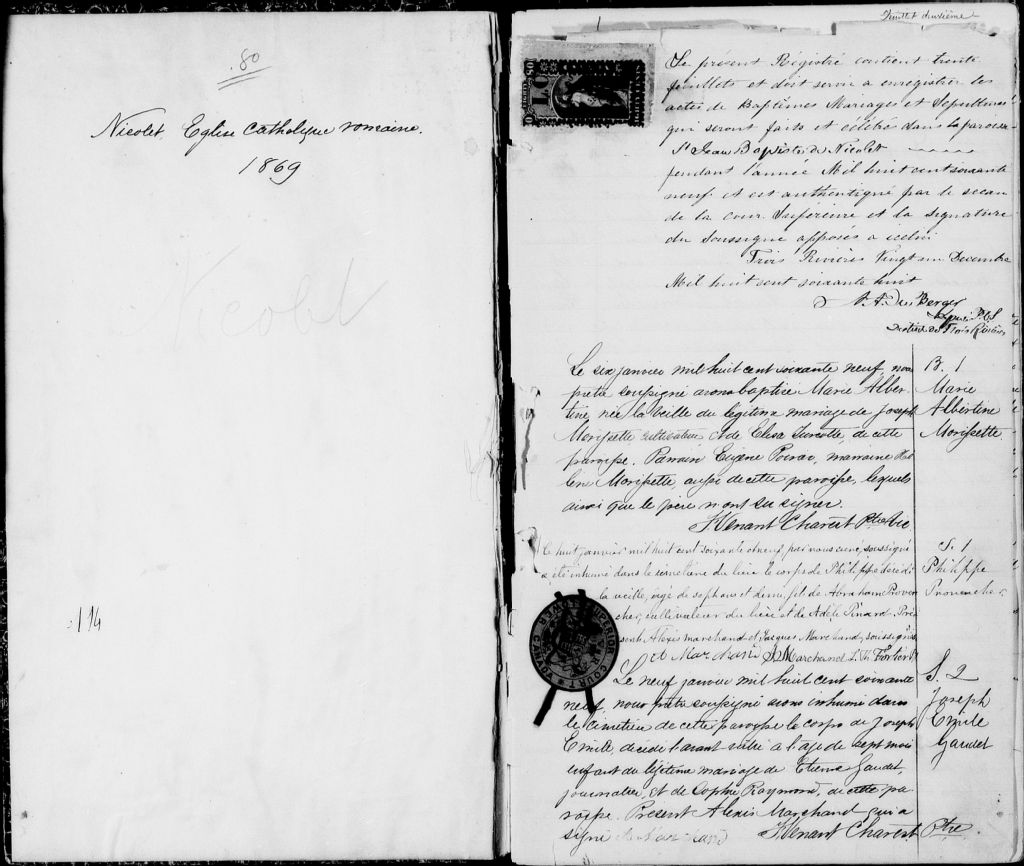 80
Nicolet Eglise Catholique romaine.
1869
Nicolet
194
Feuillet deuxième
Le présent Régistre contient trente
feuillets et doit servir a enregistrer les
actes de Baptêmes Mariages et Sépultures
qui seront faits et célébrés dans la paroisse
St Jean Baptiste de Nicolet
pendant l'année Mil huit cent soixante
neuf et est authentiqué par le sceau
de la cour Supérieure et la signature
du Soussigné apposés a icelui
Trois Rivières Vingt un Decembre
Mil huit cent soixante huit
Berger
P.C.S
District des Trois Rivières
Le six janvier mil huit cent soixante neuf, nous
prêtre soussigné avons baptisé Marie Alber-
tine, née la veille du légitime mariage de Joseph
Morissette cultivateur et de Elisa Turcotte, de cette
paroisse. Parrain Eugène Poirier, marraine
Morissette, aussi de cette paroisse, lesquels
ainsi que le père n'ont su signer.
H Venant Charest Ptre Vic
B. 1
Marie
Albertine
Morissette
Le huit janvier mil huit cent soixante et neuf, par nous curé, soussigné
a été inhumé dans le cimetière du lieu le corps de Philippe décédé
la veille, agé de sept ans et demi, fils de Abraham Proven
cher, cultivateur du lieu et de Adèle Pinard. Pré
sents Alexis Marchand et Jacques Marchand, soussignés
Marchand J. Marchand L. Th. Fortier
S. 1
Philippe
Provencher
Le neuf janvier mil huit cent soixante
neuf, nous prêtre soussigné avons inhumé dans
le cimetière de cette paroisse le corps de Joseph
Emile, décédé l'avant veille a l'age de sept mois
enfant du légitime mariage de Etienne Gaudet,
journalier, et de Sophie Raymond, de cette pa
roisse. Présent Alexis Marchand qui a
signé Marchand H Venant Charest Ptre.
S. 2
Joseph
Emile
Gaudet
SUPERIOR COURT
LOWER CANADA